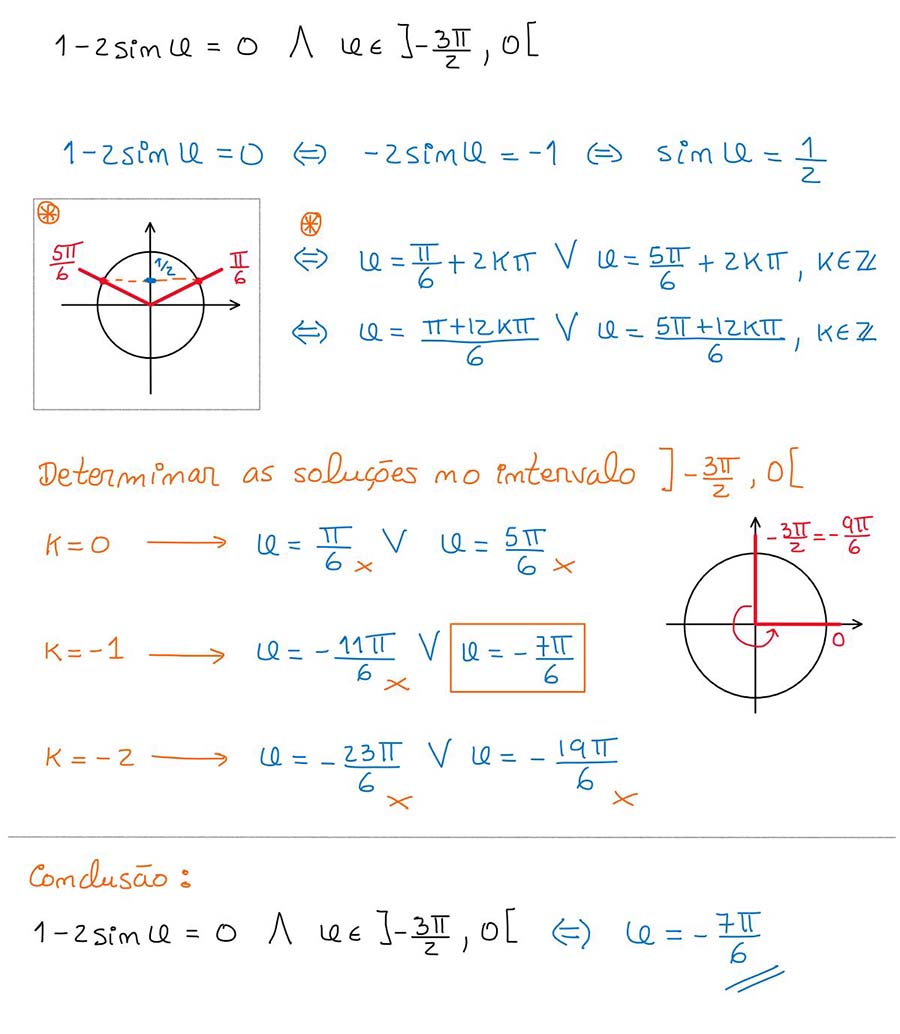 1-2sin α = 0 ∧ α ∈ ]-3π/2, 0[
1-2sin α = 0 ⇔ -2sin α = -1 ⇔ sin α = 1/2
⊛
5π/6 1/2 π/6
⊛
⇔ α = π/6 + 2kπ ∨ α = 5π/6 + 2kπ, k∈ℤ
⇔ α = (π+12kπ)/6 ∨ α = (5π+12kπ)/6, k∈ℤ
Determinar as soluções no intervalo ]-3π/2, 0[
k=0 → α = π/6 × ∨ α = 5π/6 ×
-3π/2 = -9π/6
0
k=-1 → α = -11π/6 × ∨ α = -7π/6
k=-2 → α = -23π/6 × ∨ α = -19π/6 ×
Conclusão:
1-2sin α = 0 ∧ α ∈ ]-3π/2, 0[ ⇔ α = -7π/6